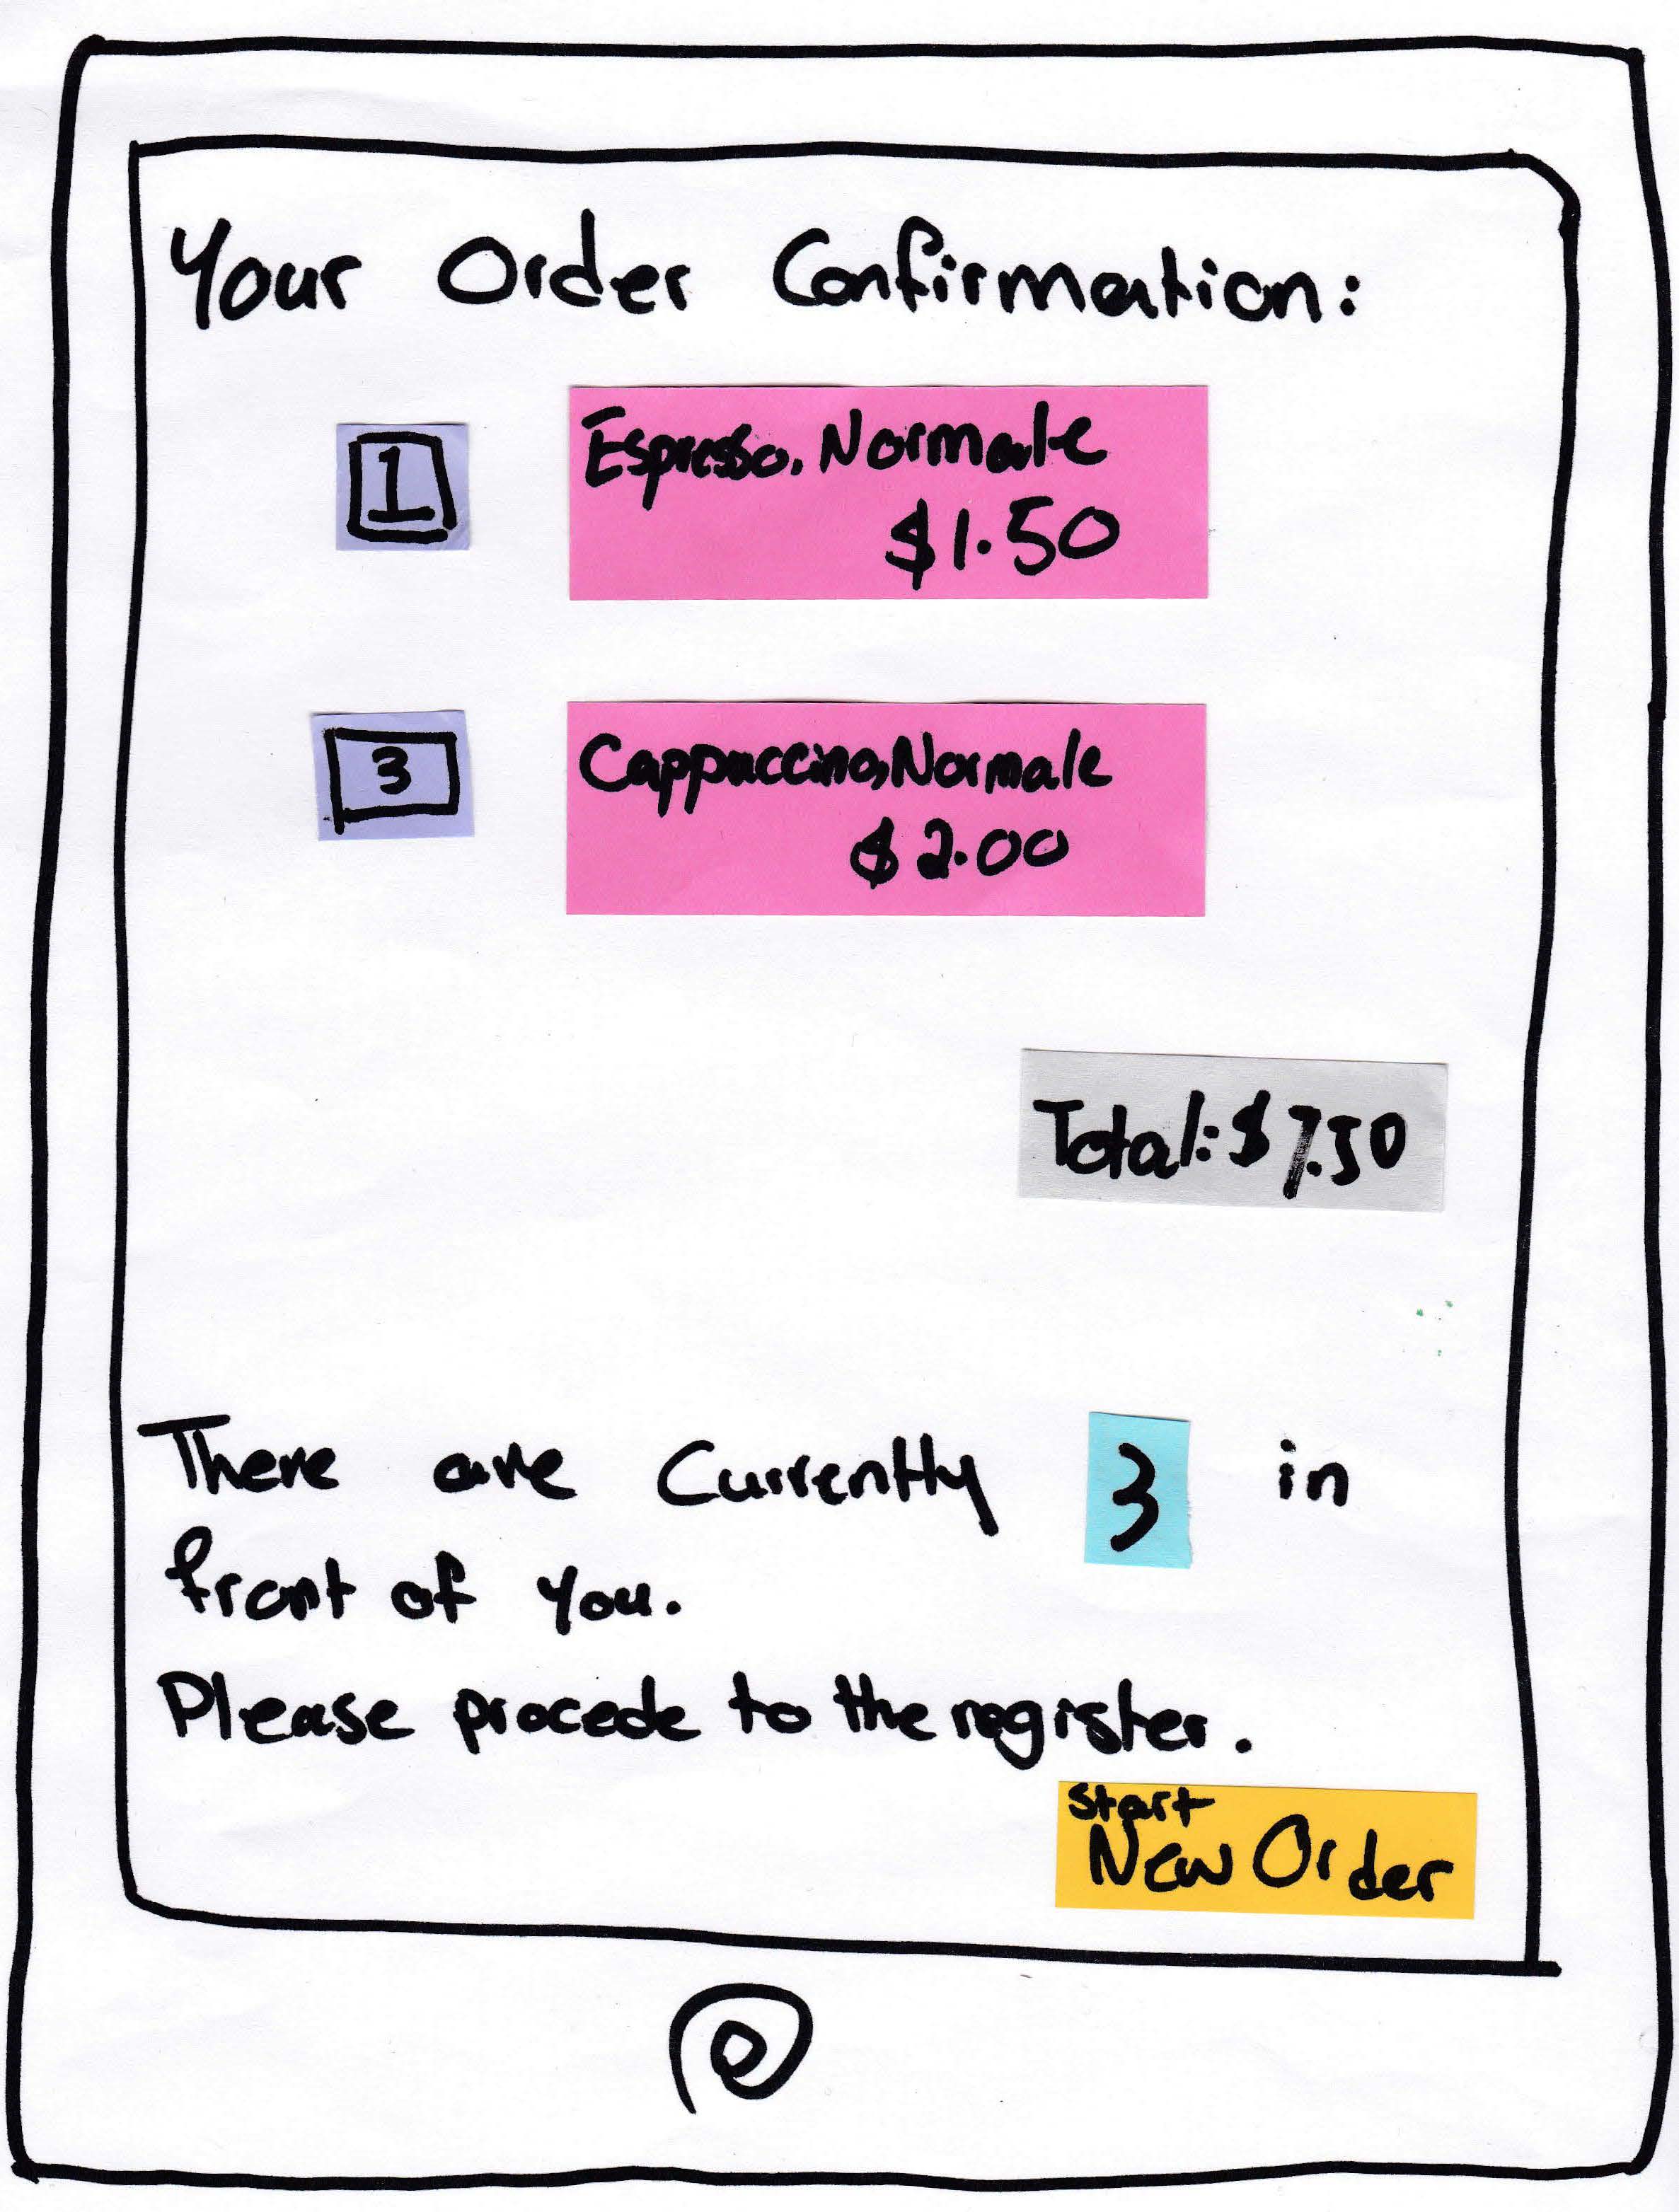 Your Order Confirmation:
1
Espresso, Normale
$1.50
3
Cappuccino, Normale
$2.00
Total: $7.50
There are Currently 3 in
front of you.
Please procede to the register.
Start
New Order